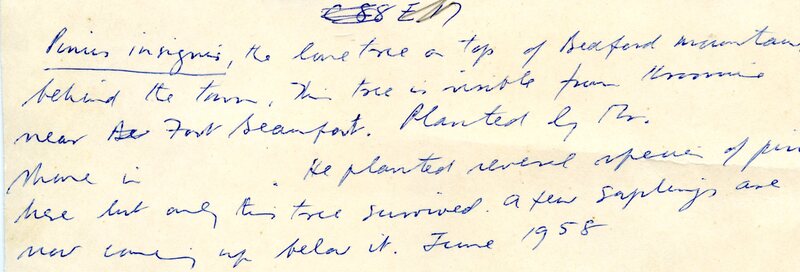 88 E
Pinus insignis, the lone tree on top of Bedford mountain
behind the town. This tree is visible from Kroomie
near Fort Beaufort. Planted by Mr.
in . He planted several species of pine
here but only this tree survived. A few saplings are
now coming up below it. June 1958